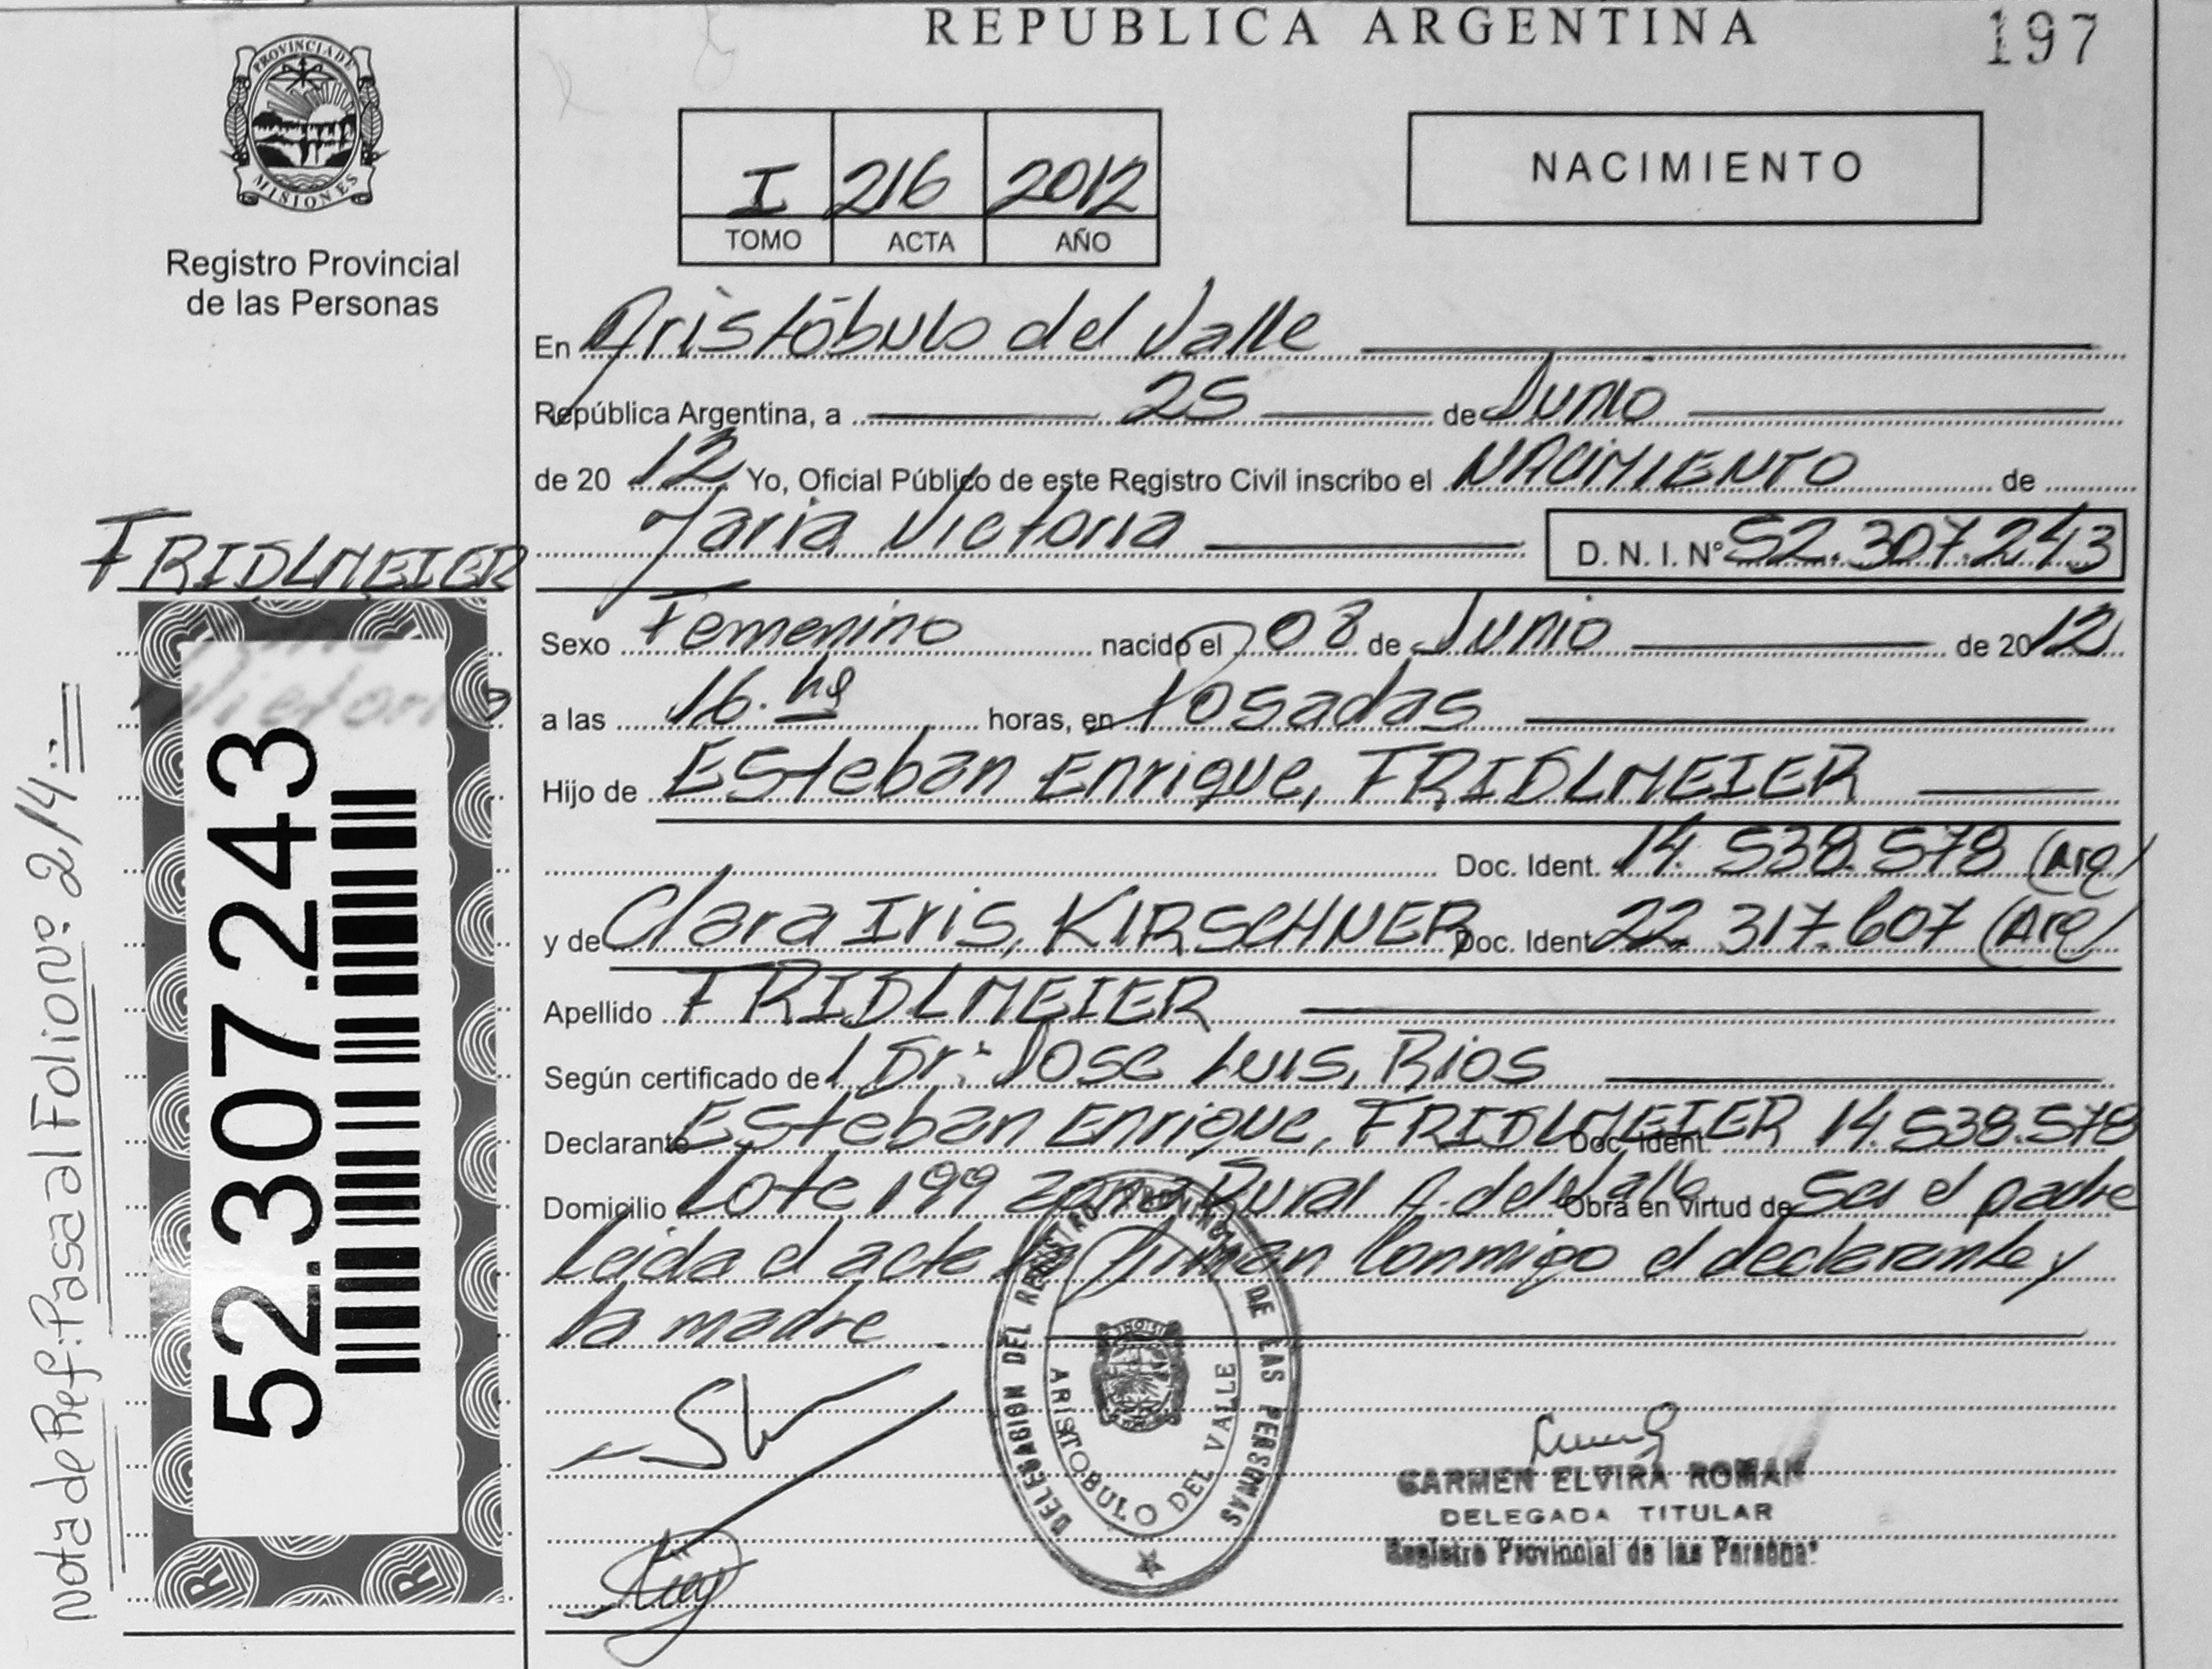 REPUBLICA ARGENTINA
197
PROVINCIA DE
MISIONES
Registro Provincial
de las Personas
I 216 2012
TOMO ACTA AÑO
NACIMIENTO
En Aristóbulo del Valle
República Argentina, a 25 de Junio
de 20 12 Yo, Oficial Público de este Registro Civil inscribo el NACIMIENTO de
Maria Victoria D. N. I. Nº 52.307.243
FRIDLMEIER
Victoria
52.307.243
Nota de Ref: Pasa al Folio nº 214
Sexo Femenino nacido el 08 de Junio de 20 12
a las 16. hs horas, en Posadas
Hijo de Esteban Enrique, FRIDLMEIER
Doc. Ident. 14.538.578 (Arg)
y de Clara Iris, KIRSCHNER Doc. Ident 22.317.607 (Arg)
Apellido FRIDLMEIER
Según certificado del Dr: Jose Luis, Rios
Declarante Esteban Enrique, FRIDLMEIER Doc. Ident. 14.538.578
Domicilio Lote 199 zona Rural A. del Valle Obra en virtud de Ser el padre
Leida el acta la firman Conmigo el declarante y
la madre
DELEGACION DEL REGISTRO PROVINCIAL DE LAS PERSONAS
ARISTOBULO DEL VALLE
CARMEN ELVIRA ROMAN
DELEGADA TITULAR
Registro Provincial de las Personas